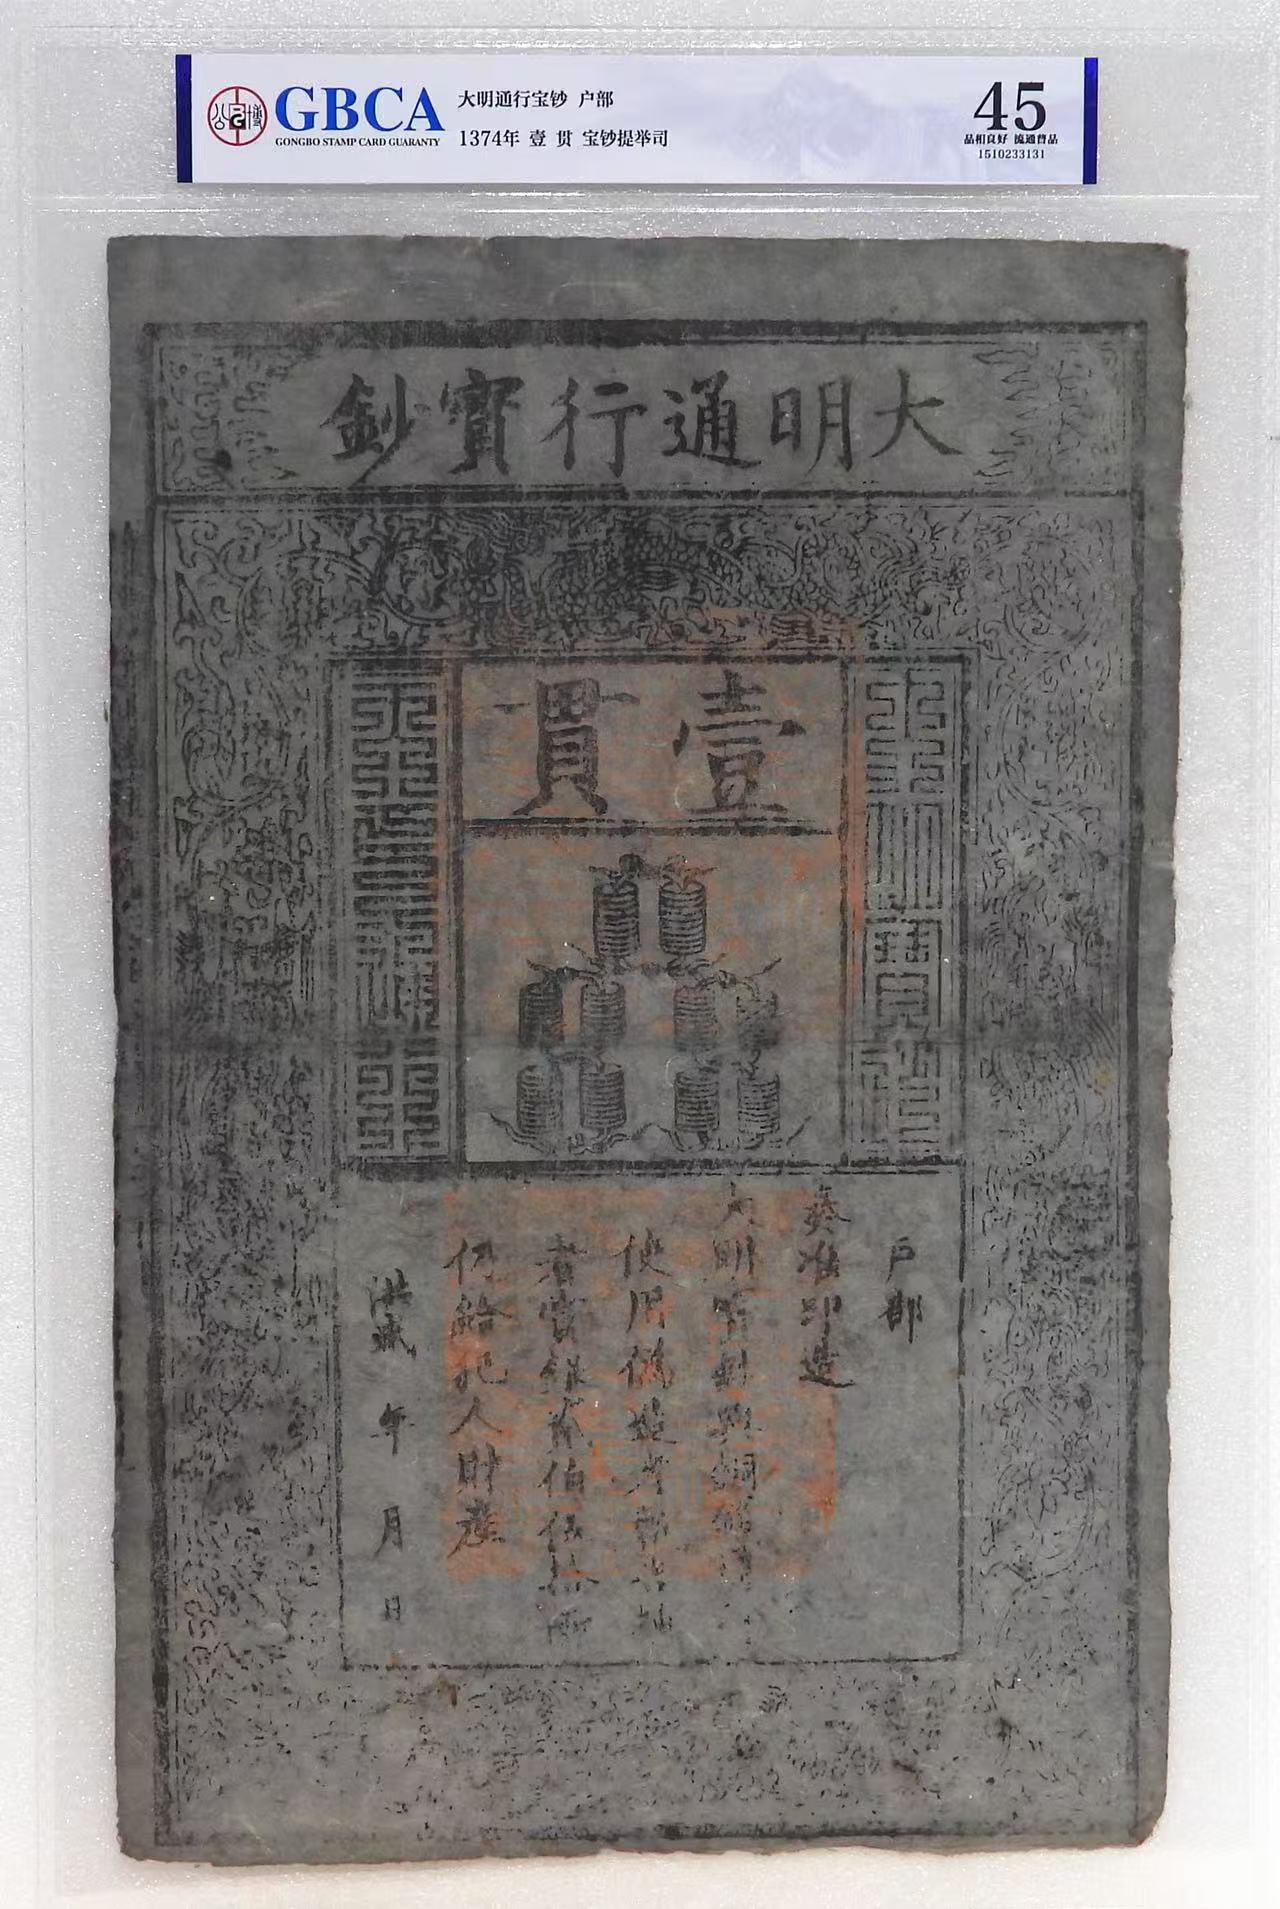 GBCA
GONGBO STAMP CARD GUARANTY
大明通行宝钞 户部
1374年 壹 贯 宝钞提举司
45
品相良好 流通普品
1510233131
大明通行寶鈔
壹貫
户部
奏准印造
大明寳鈔與銅錢通行
使用偽造者斬告捕
者賞銀貳伯伍拾兩
仍給犯人財産
洪武 年 月 日